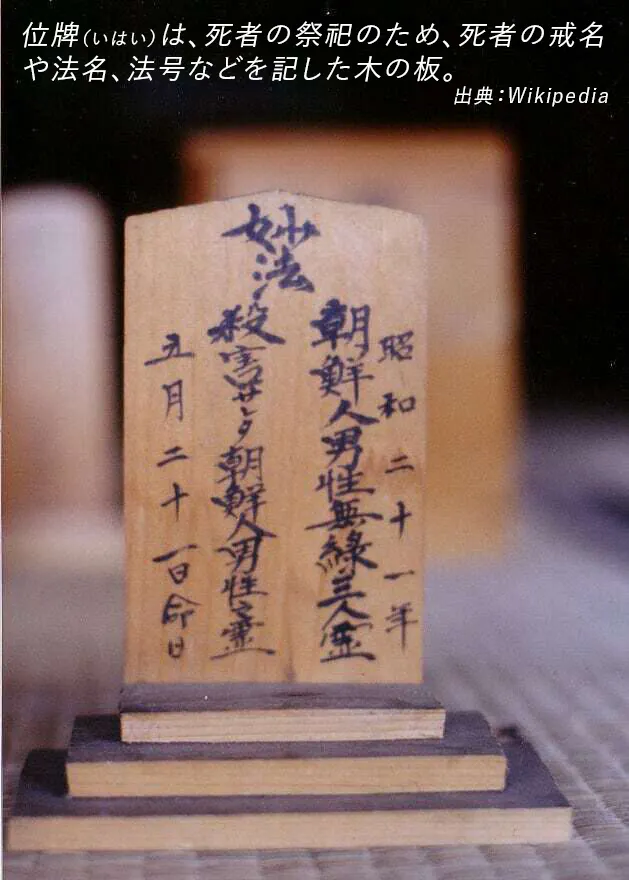 位牌(いはい)は、死者の祭祀のため、死者の戒名
や法名、法号などを記した木の板。
出典：Wikipedia
妙法
昭和二十一年
朝鮮人男性無縁三人霊
殺害サレタ朝鮮人男性之霊
五月二十一日命日